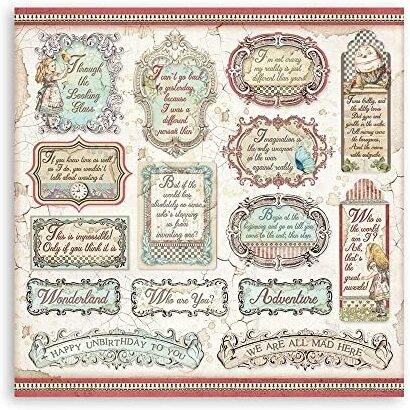 Through
the
Looking
Glass
I
can't go back
to yesterday,
because
I was a
different
person then
I'm not crazy
my reality is just
different than yours
'Twas brillig, and
the slithy toves
Did gyre and
wimble in the
wabe;
All mimsy were
the borogoves,
And the mome
raths outgrabe.
If you knew time as well
as I do, you wouldn't
talk about wasting it
But if the
world has
absolutely no sense,
who's stopping
us from
inventing one?
Imagination is
the only weapon
in the war
against reality
This is impossible!
Only if you think it is
Begin at the
beginning and go on till you
come to the end; then stop.
Who in
the world
am I?
Ah,
that's
the
great
puzzle!
Wonderland
Who are You?
Adventure
HAPPY UNBIRTHDAY TO YOU
WE ARE ALL MAD HERE